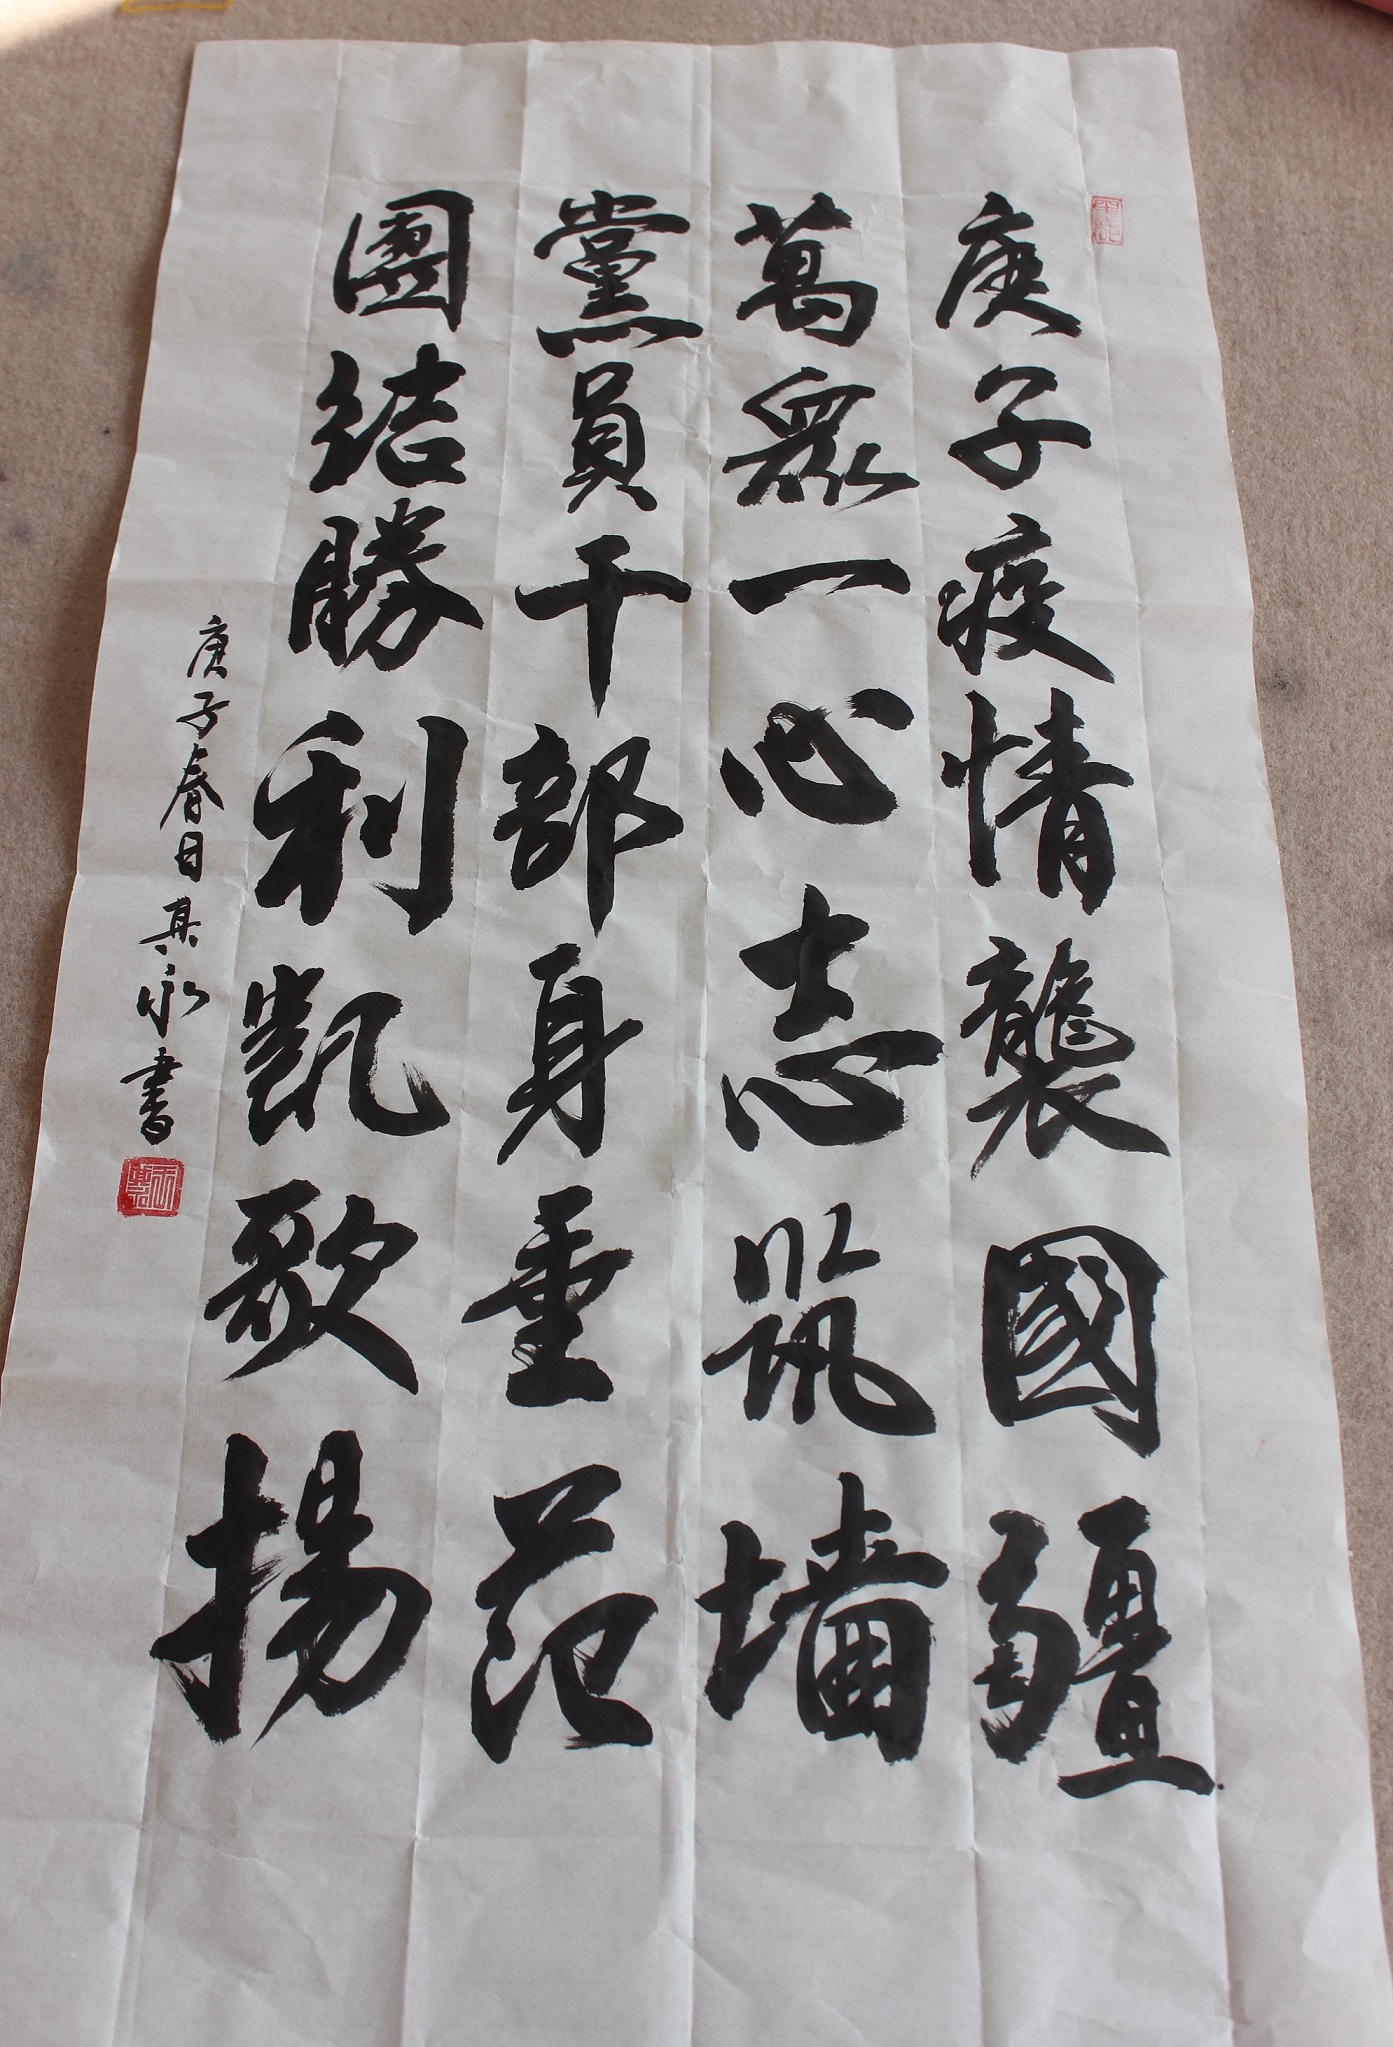 庚子疫情襲國疆
萬眾一心志筑墙
黨員干部身重范
團結勝利凱歌揚
庚子春日其永書